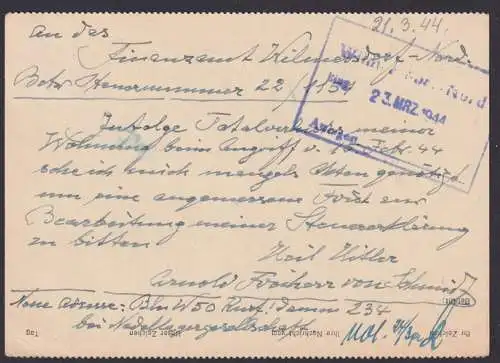 21.3.44.
An das
Finanzamt Wilmersdorf-Nord
Betr. Steuernummer 22/1154
Nord
23. MRZ. 1944
Anlagen
Infolge Totalverlust meiner
Wohnung beim Angriff v. 15. Febr. 44
sehe ich mich mangels Akten genötigt
um eine angemessene Frist zur
Bearbeitung meiner Steuererklärung
zu bitten
Heil Hitler
Arnold Freiherr von
Neue Adresse: Bln W 50 Kurf.damm 234
bei
Ihr Zeichen
Ihre Nachricht vom
Unser Zeichen
Tag